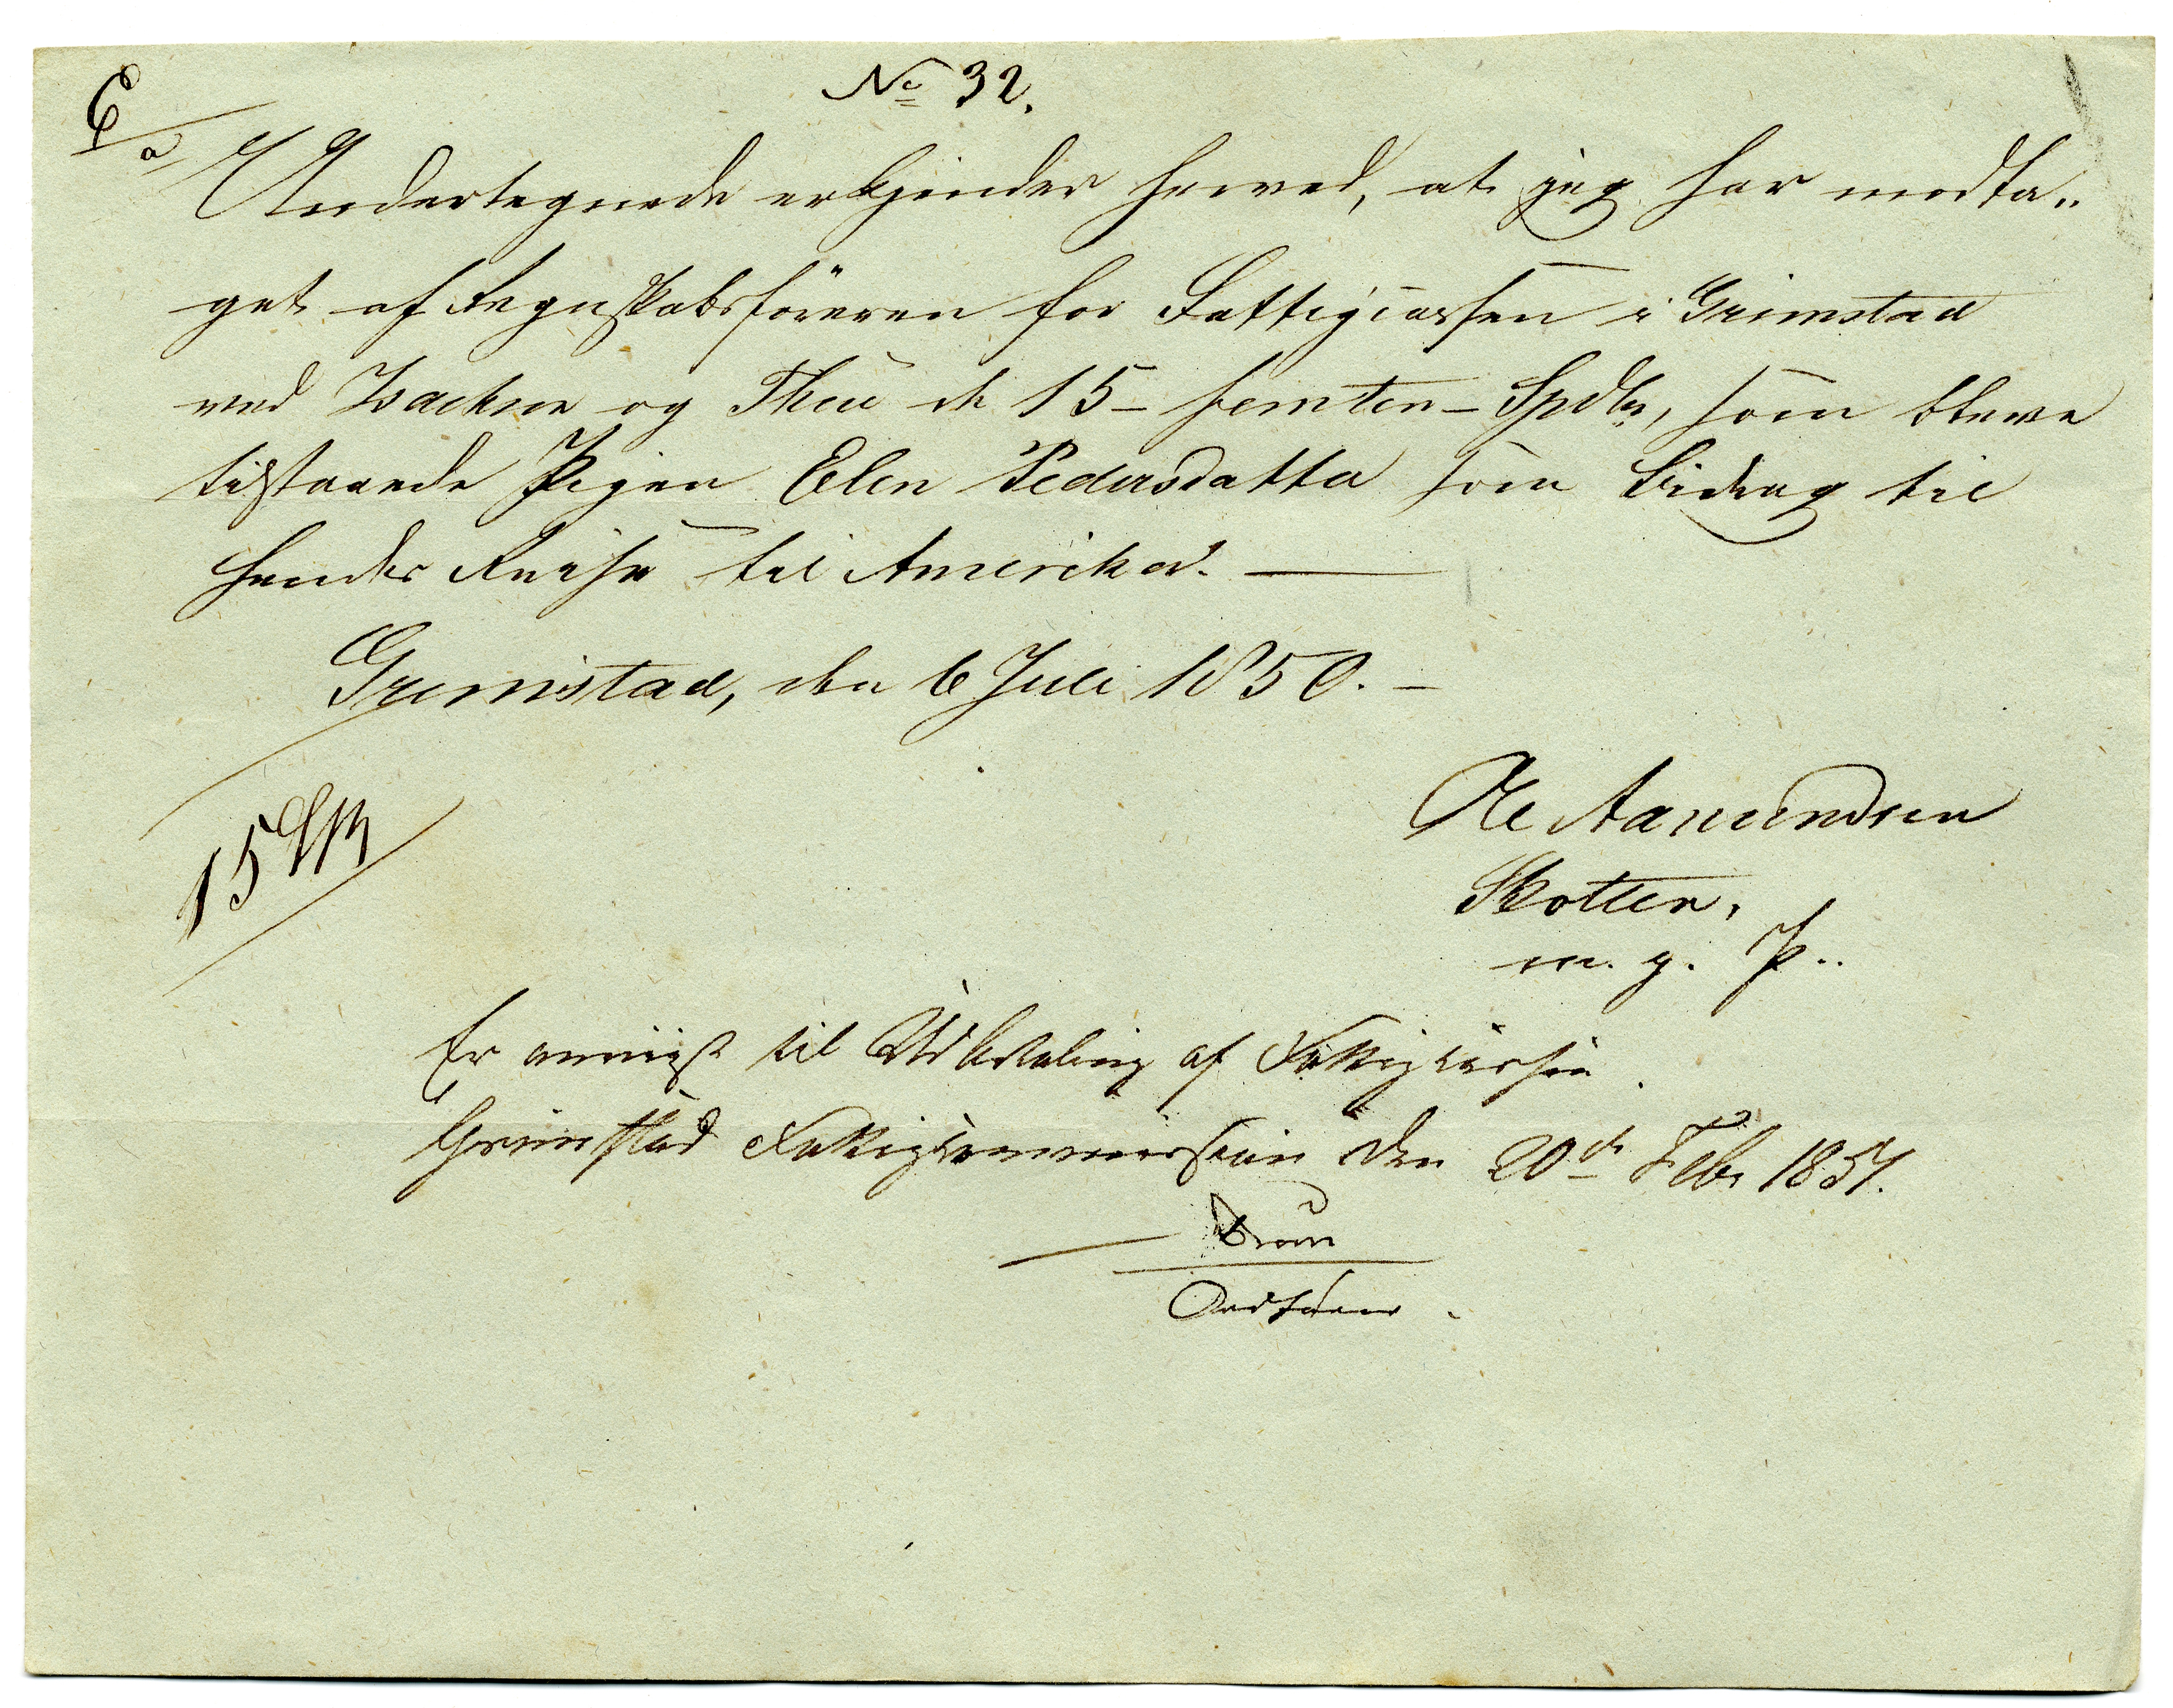 No 32.
E/a
Undertegnede erkjender herved, at jeg har modta„
get af Regnskabsføreren for Fattigcassen i Grimstad
ved Isachsen og Theu de 15 – femten – Spdlr, som bleve
tilstaaede Pigen Elen Pedersdatter som Bidrag til
hendes Reise til Amerika. —
Grimstad, den 6 Juli 1850. –
Ole Aamundsen
15 Spd
Skotten,
m. p. P..
Er anviist til Udbetaling af Fattigkassen.
Grimstad Fattigkommission den 20de Febr 1851.
Ordfører.